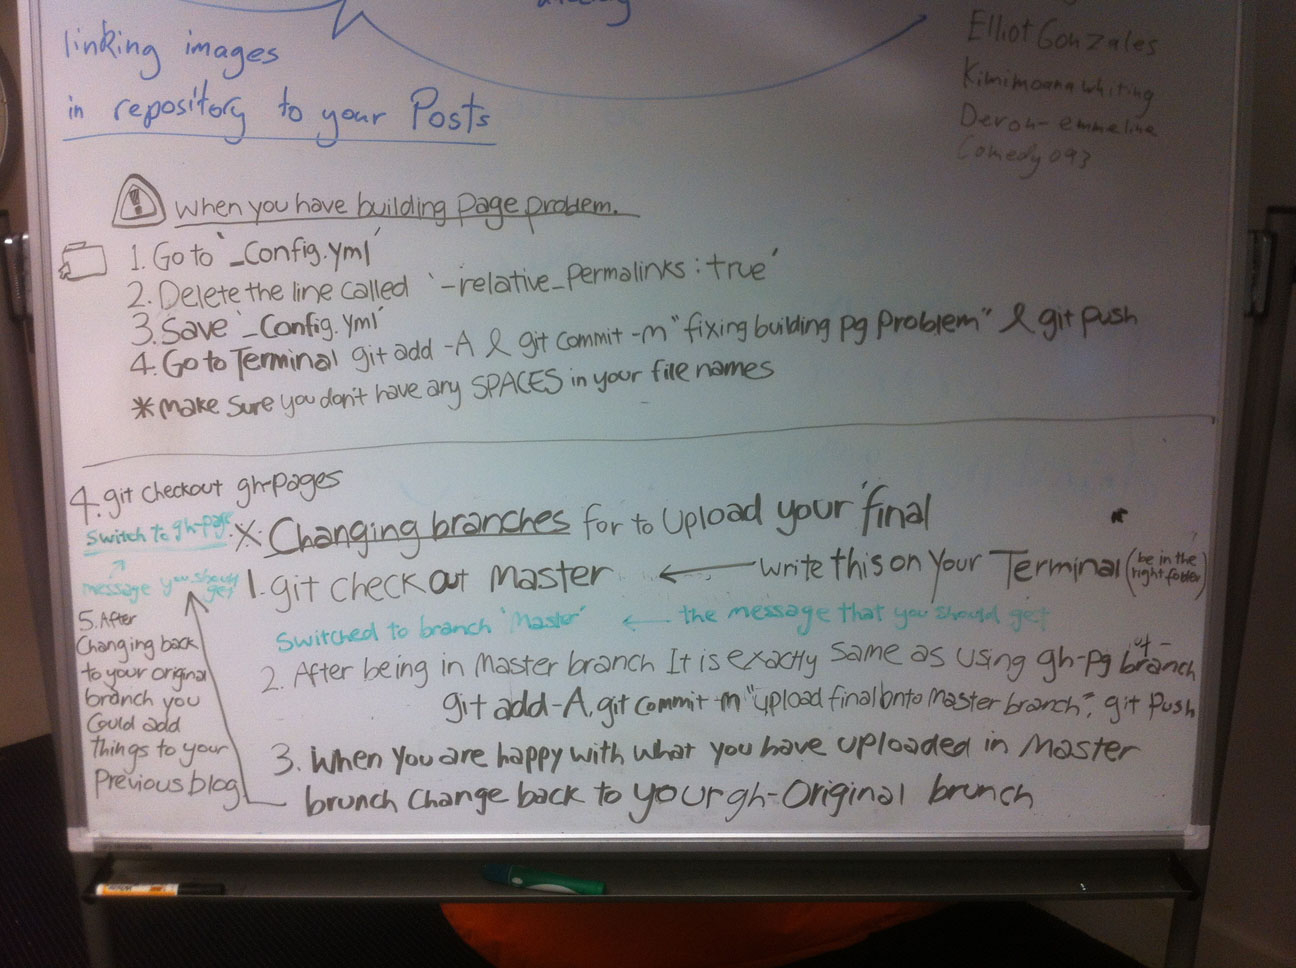 linking images
in repository to your Posts
Elliot Gonzales
Kimimoana whiting
Deron-emmeline
Comedy 093
! When you have building page problem.
1. Go to '_Config.yml'
2. Delete the line called '-relative_Permalinks: true'
3. Save '_Config.yml'
4. Go to Terminal git add -A & git commit -m "fixing building pg problem" & git push
* make sure you don't have any SPACES in your file names
4. git checkout gh-pages
Switch to gh-page.
message you should
get
5. After
Changing back
to your original
branch you
Could add
things to your
Previous blog
* Changing branches for to upload your final
1. git check out Master ← write this on your Terminal (be in the
right folder)
Switched to branch 'Master' ← the message that you should get
2. After being in Master branch It is exactly same as using gh-pg branch
git add -A, git commit -m "upload final onto Master branch", git push
3. When you are happy with what you have uploaded in Master
brunch Change back to your gh-Original brunch